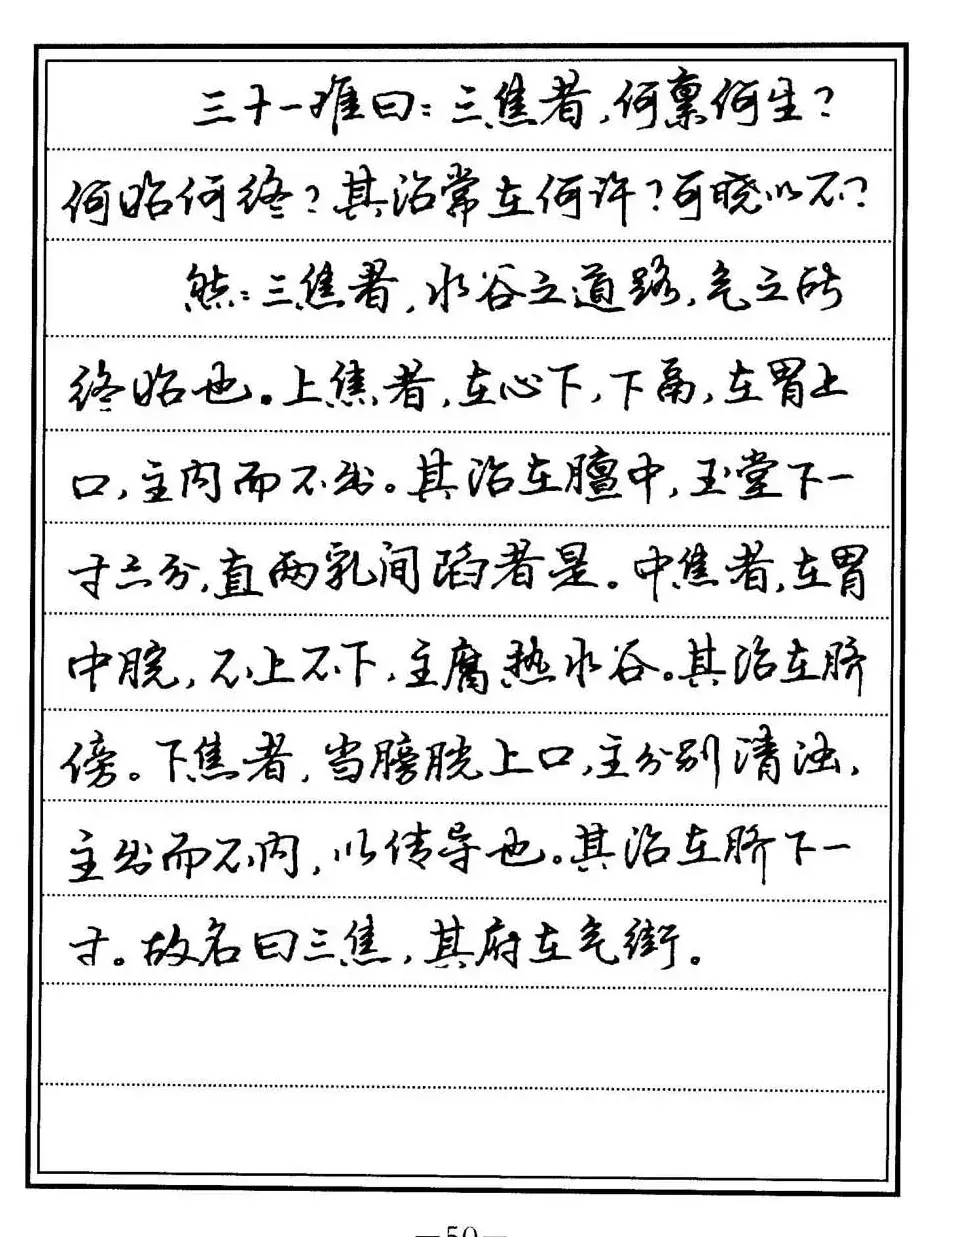 三十一难曰：三焦者，何禀何生？
何始何终？其治常在何许？可晓以不？
然：三焦者，水谷之道路，气之所
终始也。上焦者，在心下，下鬲，在胃上
口，主内而不出。其治在膻中，玉堂下一
寸六分，直两乳间陷者是。中焦者，在胃
中脘，不上不下，主腐热水谷。其治在脐
傍。下焦者，当膀胱上口，主分别清浊，
主出而不内，以传导也。其治在脐下一
寸。故名曰三焦，其府在气街。
—50—